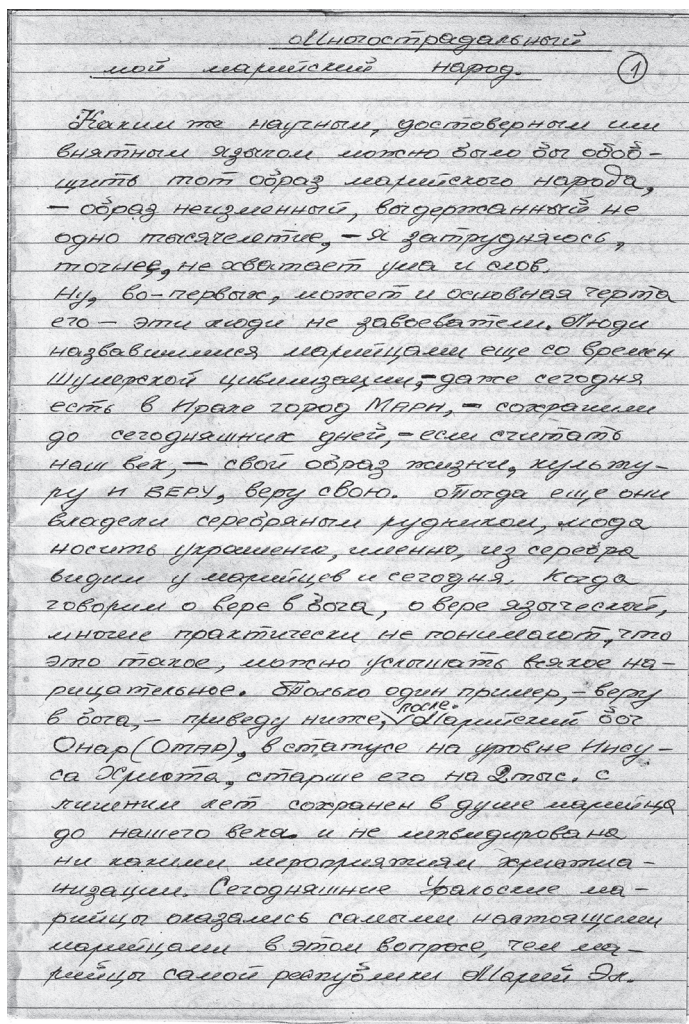 Многострадальный
мой марийский народ. 1
Каким же научным, достоверным или
внятным языком можно было бы обоб-
щить тот образ марийского народа,
– образ неизменный, выдержанный не
одно тысячелетие, – я затрудняюсь,
точнее, не хватает ума и слов.
Ну, во-первых, может и основная черта
его – эти люди не завоеватели. Люди
назвавшимися марийцами еще со времен
Шумерской цивилизации, – даже сегодня
есть в Ираке город МАРИ, – сохранили
до сегодняшних дней, – если считать
наш век, – свой образ жизни, культу-
ру И ВЕРУ, веру свою. Тогда еще они
владели серебряным рудником, мода
носить украшения, именно, из серебра
видим у марийцев и сегодня. Когда
говорим о вере в бога, о вере языческой,
многие практически не понимают, что
это такое, можно услышать всякое на-
рицательное. Только один пример, – веру
в бога, – приведу ниже, после. Марийский бог
Онар (ОТАР), в статусе на уровне Иису-
са Христа, старше его на 2 тыс. с
лишним лет сохранен в душе марийца
до нашего века. и не ликвидирована
ни какими мероприятиям христиа-
низации. Сегодняшние Уральские ма-
рийцы оказались самыми настоящими
марийцами в этом вопросе, чем ма-
рийцы самой республики Марий Эл.